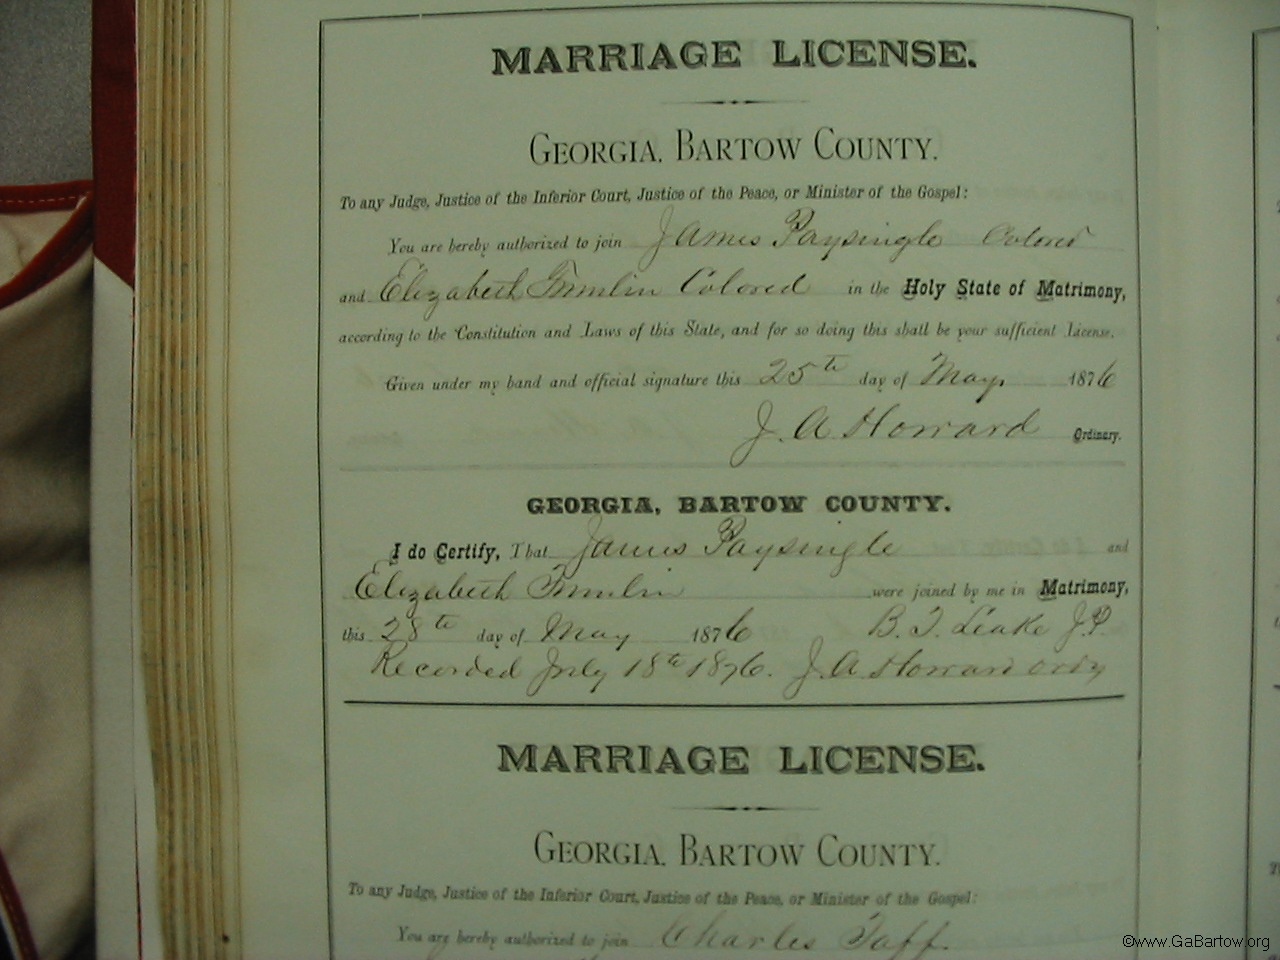 MARRIAGE LICENSE.
GEORGIA, BARTOW COUNTY.
To any Judge, Justice of the Inferior Court, Justice of the Peace, or Minister of the Gospel:
You are hereby authorized to join James Paysingle Colored
and Elizabeth Tumlin Colored in the Holy State of Matrimony,
according to the Constitution and Laws of this State, and for so doing this shall be your sufficient License.
Given under my hand and official signature this 25th day of May, 1876
J. A Howard Ordinary.
GEORGIA, BARTOW COUNTY.
I do Certify, That James Paysingle and
Elizabeth Tumlin were joined by me in Matrimony,
this 28th day of May 1876 B. T. Leake J.P.
Recorded July 18th 1876. J. A Howard ordy
MARRIAGE LICENSE.
GEORGIA, BARTOW COUNTY.
To any Judge, Justice of the Inferior Court, Justice of the Peace, or Minister of the Gospel:
You are hereby authorized to join Charles Taff.
©www.GaBartow.org